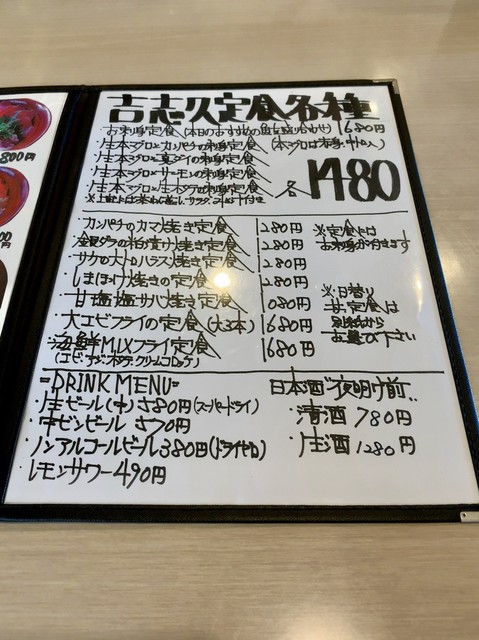 吉志久定食各種
・お刺身定食(本日のおすすめの魚 盛り合わせ) 1680円
・生本マグロとカンパチの刺身定食 (本マグロは赤身・中トロ入)
・生本マグロと真ダイの刺身定食
・生本マグロとサーモンの刺身定食
・生本マグロと生ホタテの刺身定食
各 1480
・カンパチのカマ焼き定食 1280円
・銀ダラの粕漬け焼き定食 1280円
・サケの大トロハラス焼き定食 1280円
・しまほっけ焼きの定食 1280円
・甘塩塩サバ焼き定食 1080円
・大エビフライの定食(大3本) 1680円
・海鮮MIXフライ定食 1680円
(エビ・アジ・ホタテ・クリームコロッケ)
※定食には
お刺身が付きます
※日替り
丼定食は
別紙から
お選び下さい
=DRINK MENU=
・生ビール(中)580円(スーパードライ)
・中ビンビール 570円
・ノンアルコールビール380円(ドライゼロ)
・レモンサワー490円
日本酒"夜明け前"
・清酒 780円
・生酒 1280円
800円
円